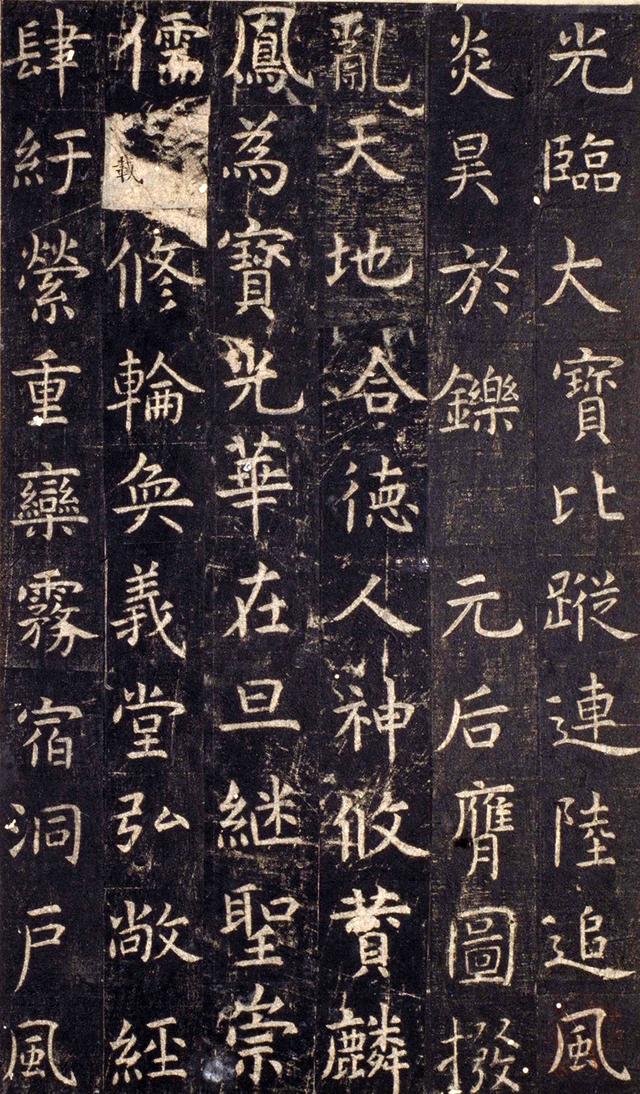 光臨大寶比蹤連陸追風
炎昊於鑠元后膺圖撥
亂天地合徳人神攸賛麟
鳳為寶光華在旦継聖崇
儒載修輪奐義堂弘敞経
肆紆縈重欒霧宿洞戸風